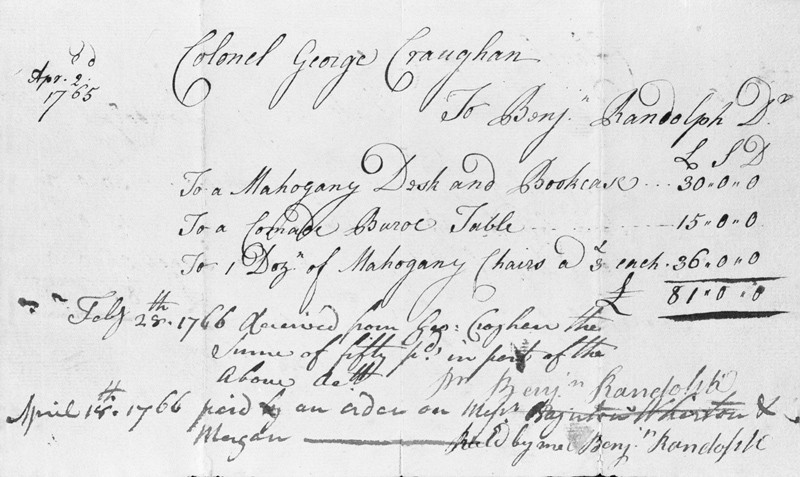 Colonel George Craughan
Apr. 2d
1765
To Benj.n Randolph Dr
£ S D
To a Mahogany Desk and Bookcase ... 30"0"0
To a Comade Buroe Table ... 15"0"0
To 1 Dozn of Mahogany Chairs a £3 each . 36"0"0
£ 81"0"0
Feby 28th. 1766 Received from Geo: Croghan the
Sume of fifty pds in part of the
Above
Benjn Randolph
April 18th. 1766 paid by an order on Messrs Baynton Wharton &
Morgan by me Benj.n Randolph